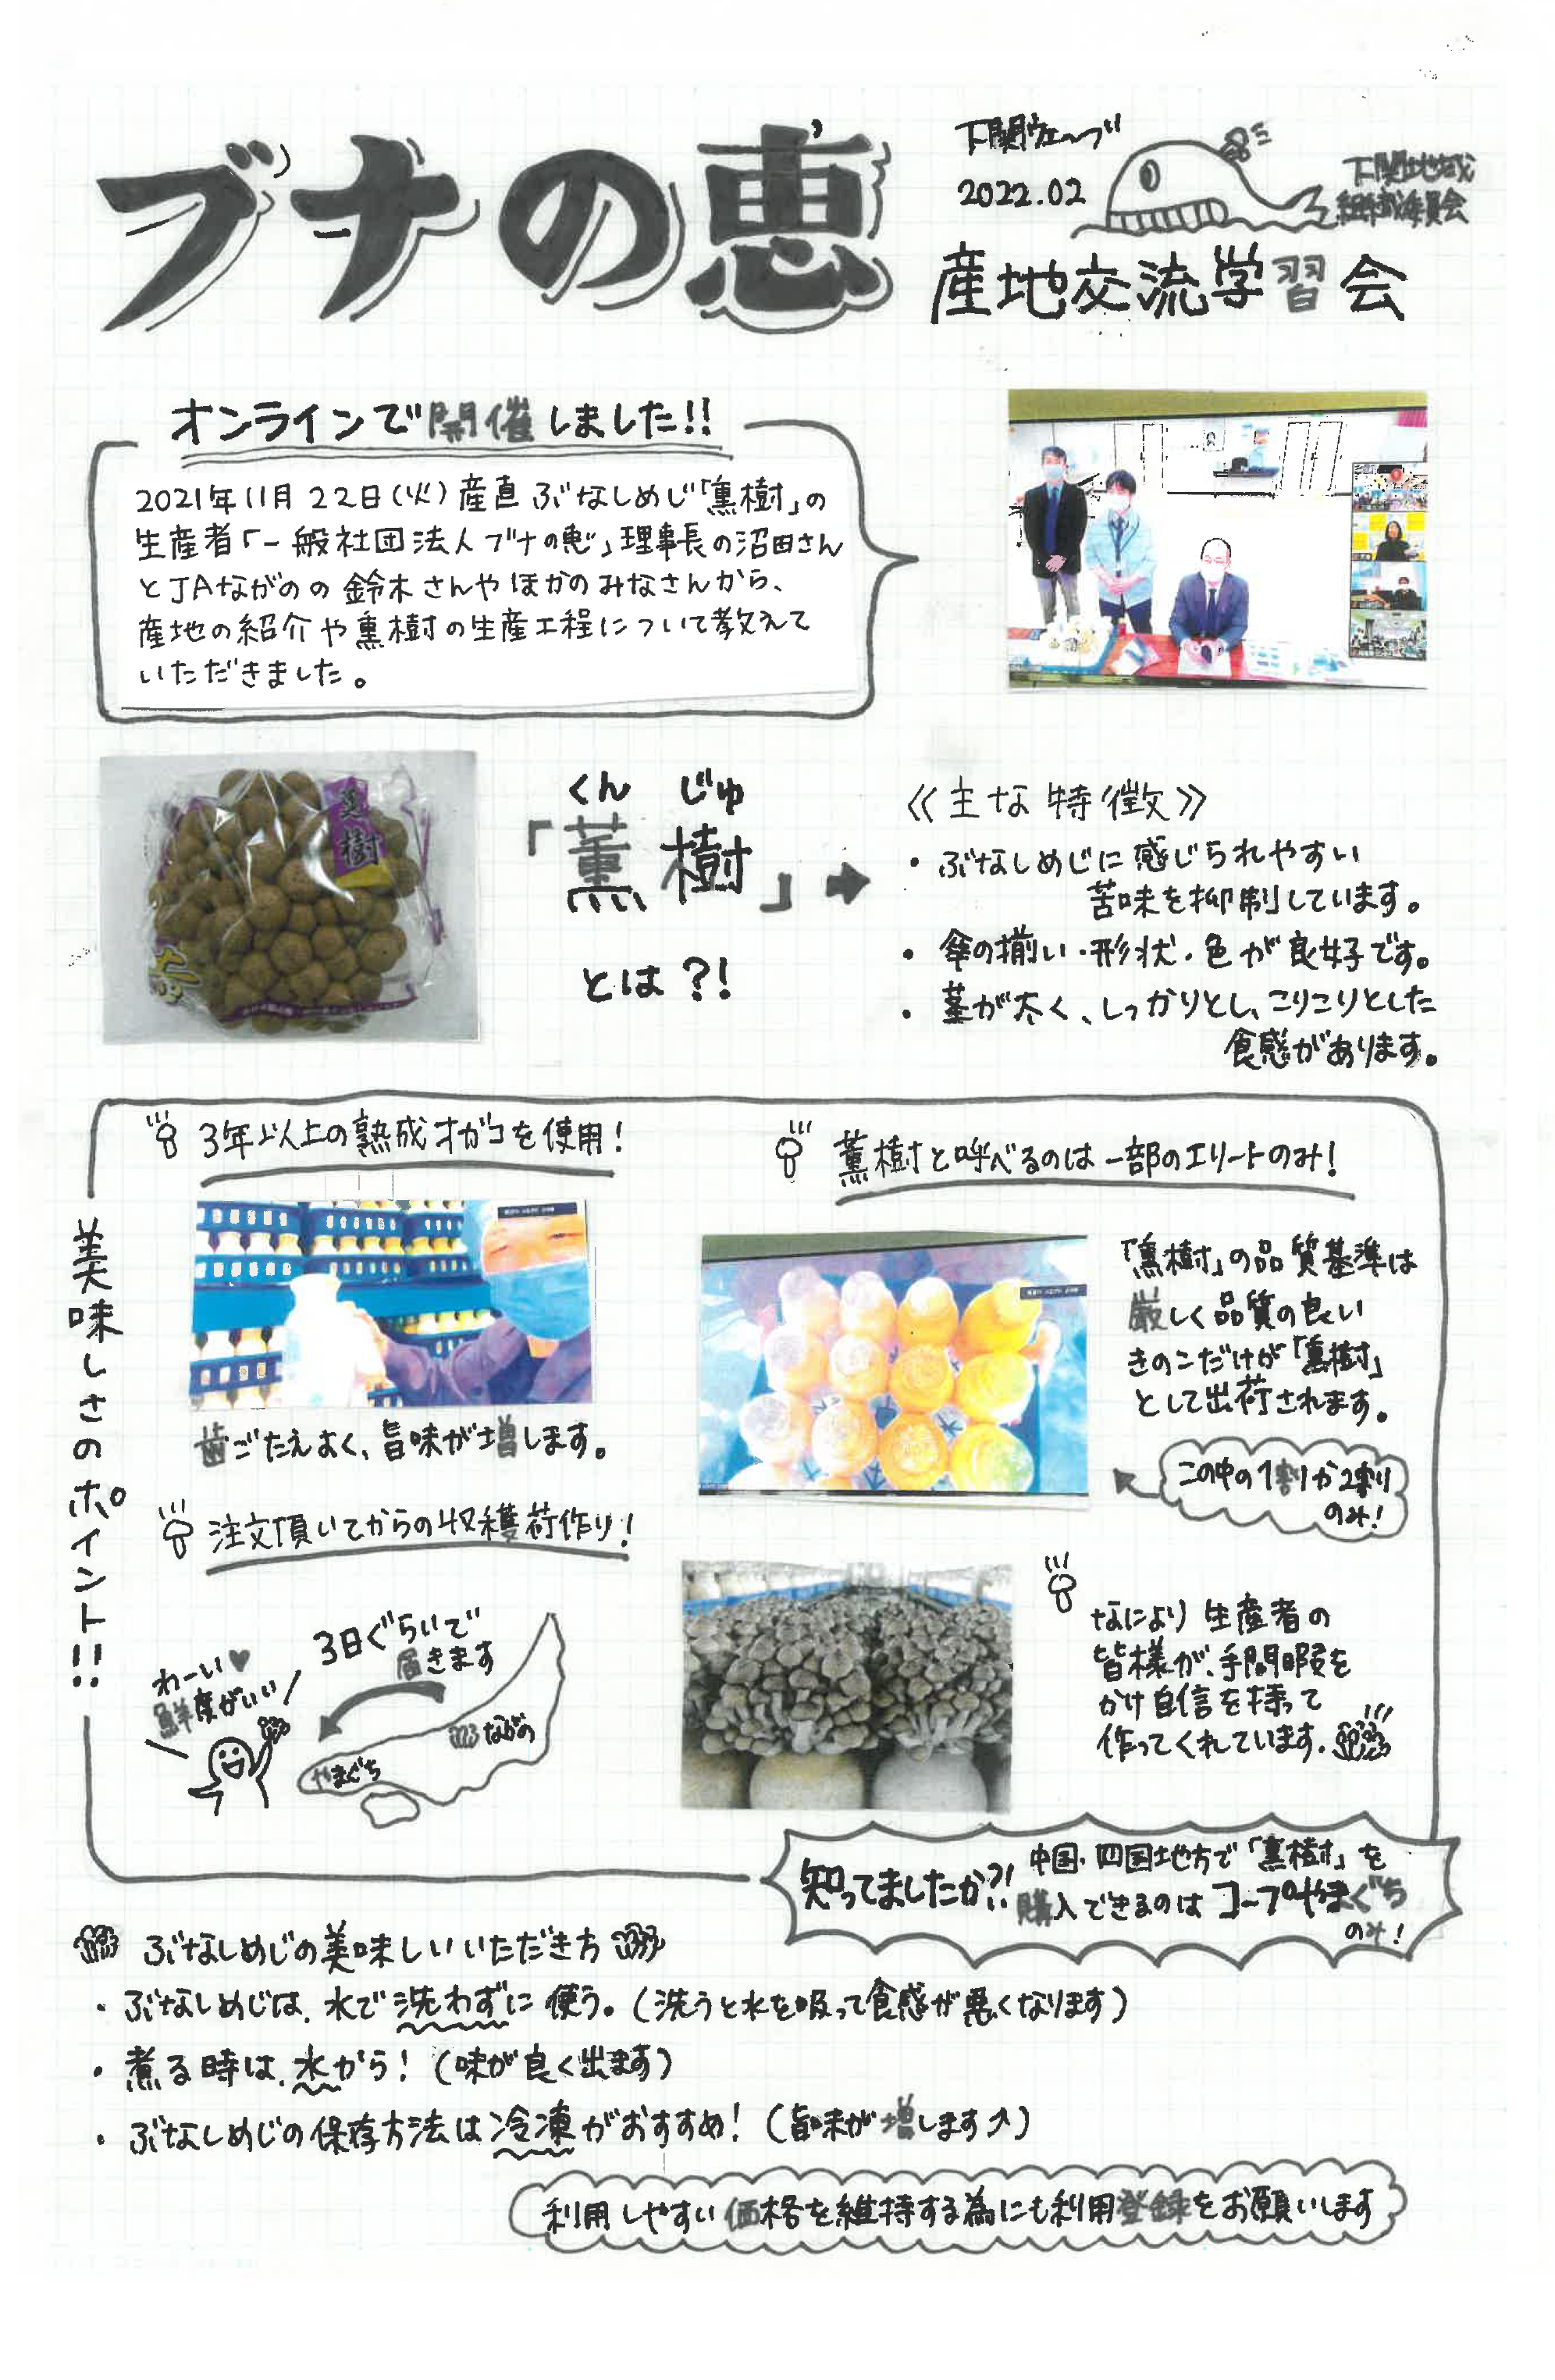 ブナの恵
下関ウェーブ
2022.02
下関地域
組織委員会
産地交流学習会
オンラインで開催しました!!
2021年11月22日(火)産直ぶなしめじ「薫樹」の
生産者「一般社団法人ブナの恵」理事長の沼田さん
とJAながのの鈴木さんやほかのみなさんから、
産地の紹介や薫樹の生産工程について教えて
いただきました。
薫樹
くんじゅ
「薫樹」
とは?!
≪主な特徴≫
・ぶなしめじに感じられやすい
苦味を抑制しています。
・傘の揃い・形状・色が良好です。
・茎が太く、しっかりとし、こりこりとした
食感があります。
美味しさのポイント!!
3年以上の熟成オガコを使用!
歯ごたえよく、旨味が増します。
注文頂いてからの収穫荷作り!
3日ぐらいで
届きます
わーい♥
鮮度がいい
ながの
やまぐち
薫樹と呼べるのは一部のエリートのみ!
「薫樹」の品質基準は
厳しく品質の良い
きのこだけが「薫樹」
として出荷されます。
この中の1割か2割り
のみ!
なにより生産者の
皆様が、手間暇を
かけ自信を持って
作ってくれています。
知ってましたか?!
中国・四国地方で「薫樹」を
購入できるのはコープやまぐち
のみ!
ぶなしめじの美味しいいただき方
・ぶなしめじは、水で洗わずに使う。(洗うと水を吸って食感が悪くなります)
・煮る時は、水から!(味が良く出ます)
・ぶなしめじの保存方法は冷凍がおすすめ!(旨味が増します↗)
利用しやすい価格を維持する為にも利用登録をお願いします